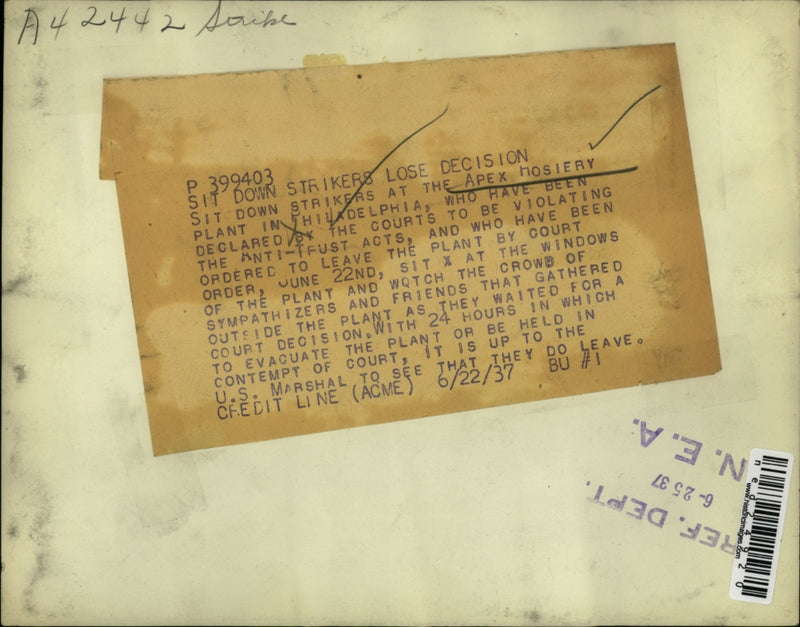 A42442 Strike
P 399403
SIT DOWN STRIKERS LOSE DECISION
SIT DOWN STRIKERS AT THE APEX HOSIERY
PLANT IN PHILADELPHIA, WHO HAVE BEEN
DECLARED BY THE COURTS TO BE VIOLATING
THE ANTI-TRUST ACTS, AND WHO HAVE BEEN
ORDERED TO LEAVE THE PLANT BY COURT
ORDER, JUNE 22ND, SIT X AT THE WINDOWS
OF THE PLANT AND WOTCH THE CROWD OF
SYMPATHIZERS AND FRIENDS THAT GATHERED
OUTSIDE THE PLANT AS THEY WAITED FOR A
COURT DECISION. WITH 24 HOURS IN WHICH
TO EVACUATE THE PLANT OR BE HELD IN
CONTEMPT OF COURT, IT IS UP TO THE
U.S. MARSHAL TO SEE THAT THEY DO LEAVE.
CREDIT LINE (ACME) 6/22/37 BU #1
REF. DEPT.
6-25 37
N. E. A.
www.historicimages.com
ned24920